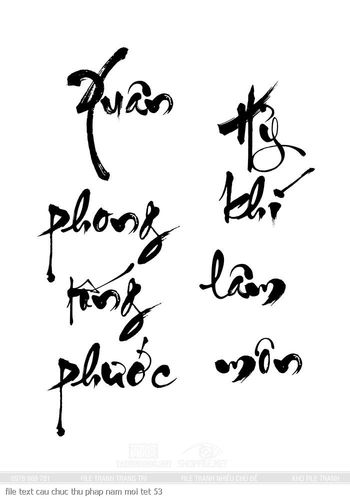 Xuân
phong
tống
phước
Hỷ
khí
lâm
môn
SHOPFILE.NET
0918 068 781
FILE TRANH TRANG TRÍ
FILE TRANH NHIỀU CHỦ ĐỀ
KHO FILE TRANH
file text cau chuc thu phap nam moi tet 53